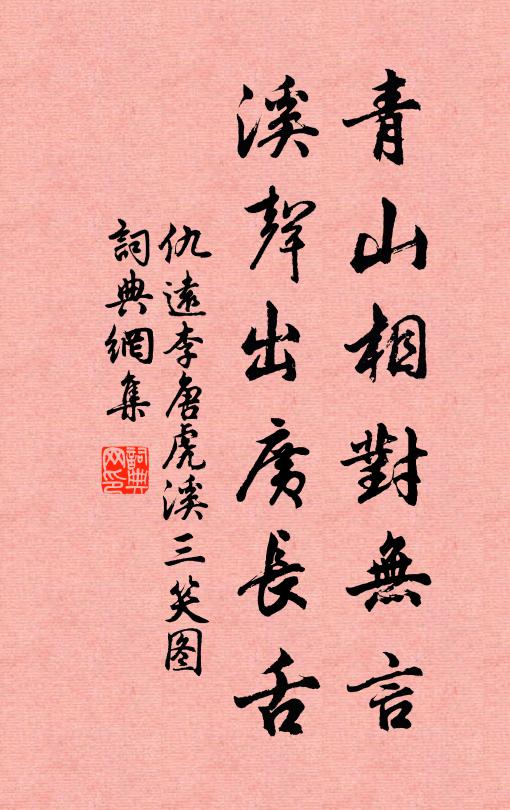 青山相對無言
溪聲出廣長舌
仇遠李唐虎溪三笑图
詞典網集
詞典网印